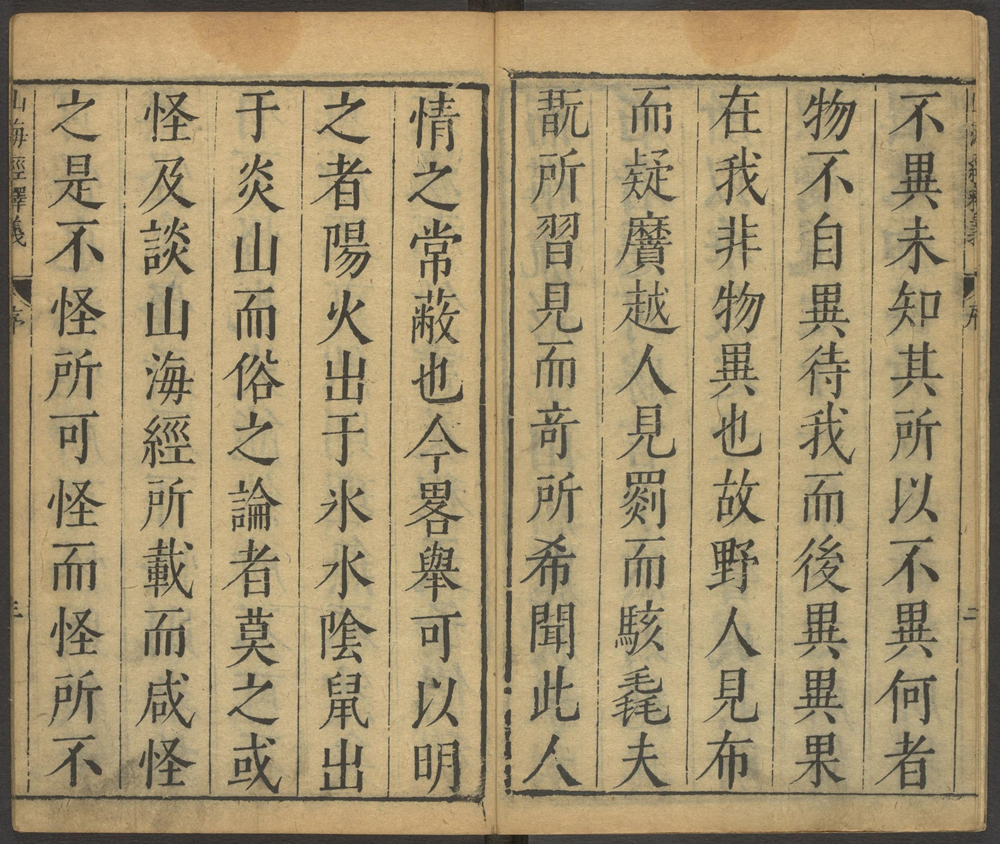 山海經釋義 序 二
不異未知其所以不異何者
物不自異待我而後異異果
在我非物異也故野人見布
而疑黂越人見罽而駭毳夫
翫所習見而竒所希聞此人
情之常蔽也今畧舉可以明
之者陽火出于氷水隂鼠出
于炎山而俗之論者莫之或
怪及談山海經所載而咸怪
之是不怪所可怪而怪所不
山海經釋義 序 三